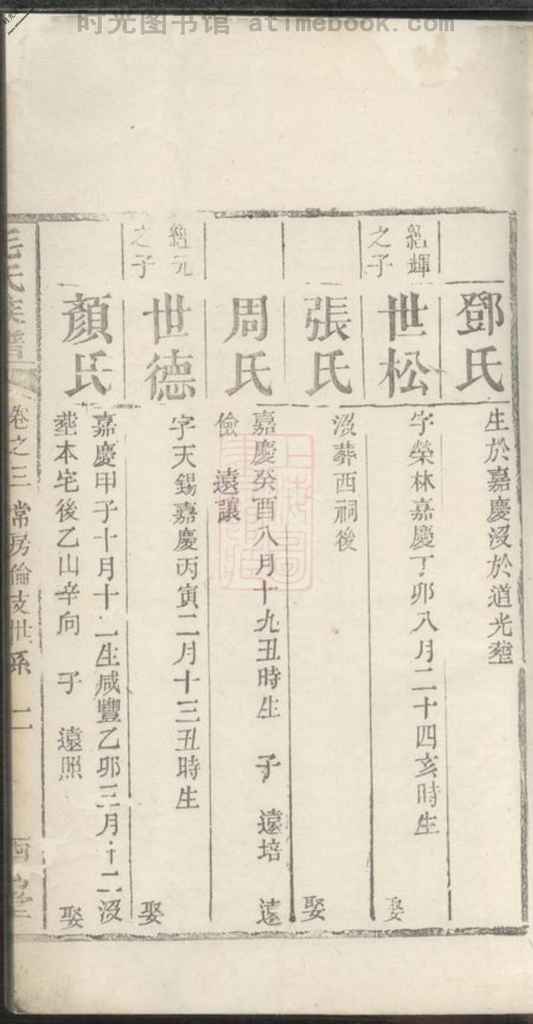 时光图书馆 atimebook.com
鄧氏
生於嘉慶沒於道光塟
紹輝
之子
世松
字榮林嘉慶丁卯八月二十四亥時生
娶
張氏
沒葬西祠後
娶
周氏
嘉慶癸酉八月十九丑時生 子 遠培 遠
儉 遠讓
紹元
之子
世德
字天錫嘉慶丙寅二月十三丑時生
娶
顏氏
嘉慶甲子十月十一生咸豐乙卯三月十二沒
塟本宅後乙山辛向 子 遠照
娶
毛氏族譜
卷之三 常房倫支世系 二